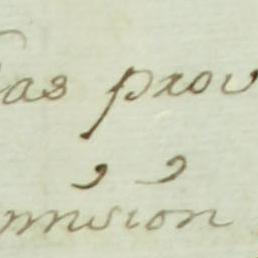 las prov
mmision